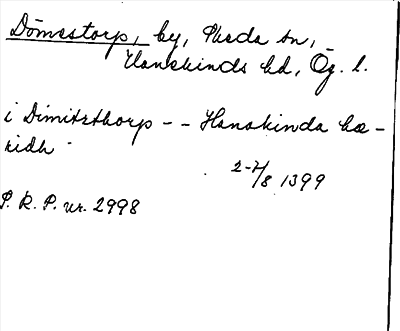 Dömestorp, by, Skeda sn,
Hanekinds hd, Ög. l.
i Dimitzthorp - - Hanakinda hæ-
ridh
2-7/8 1399
P. R. P. nr. 2998